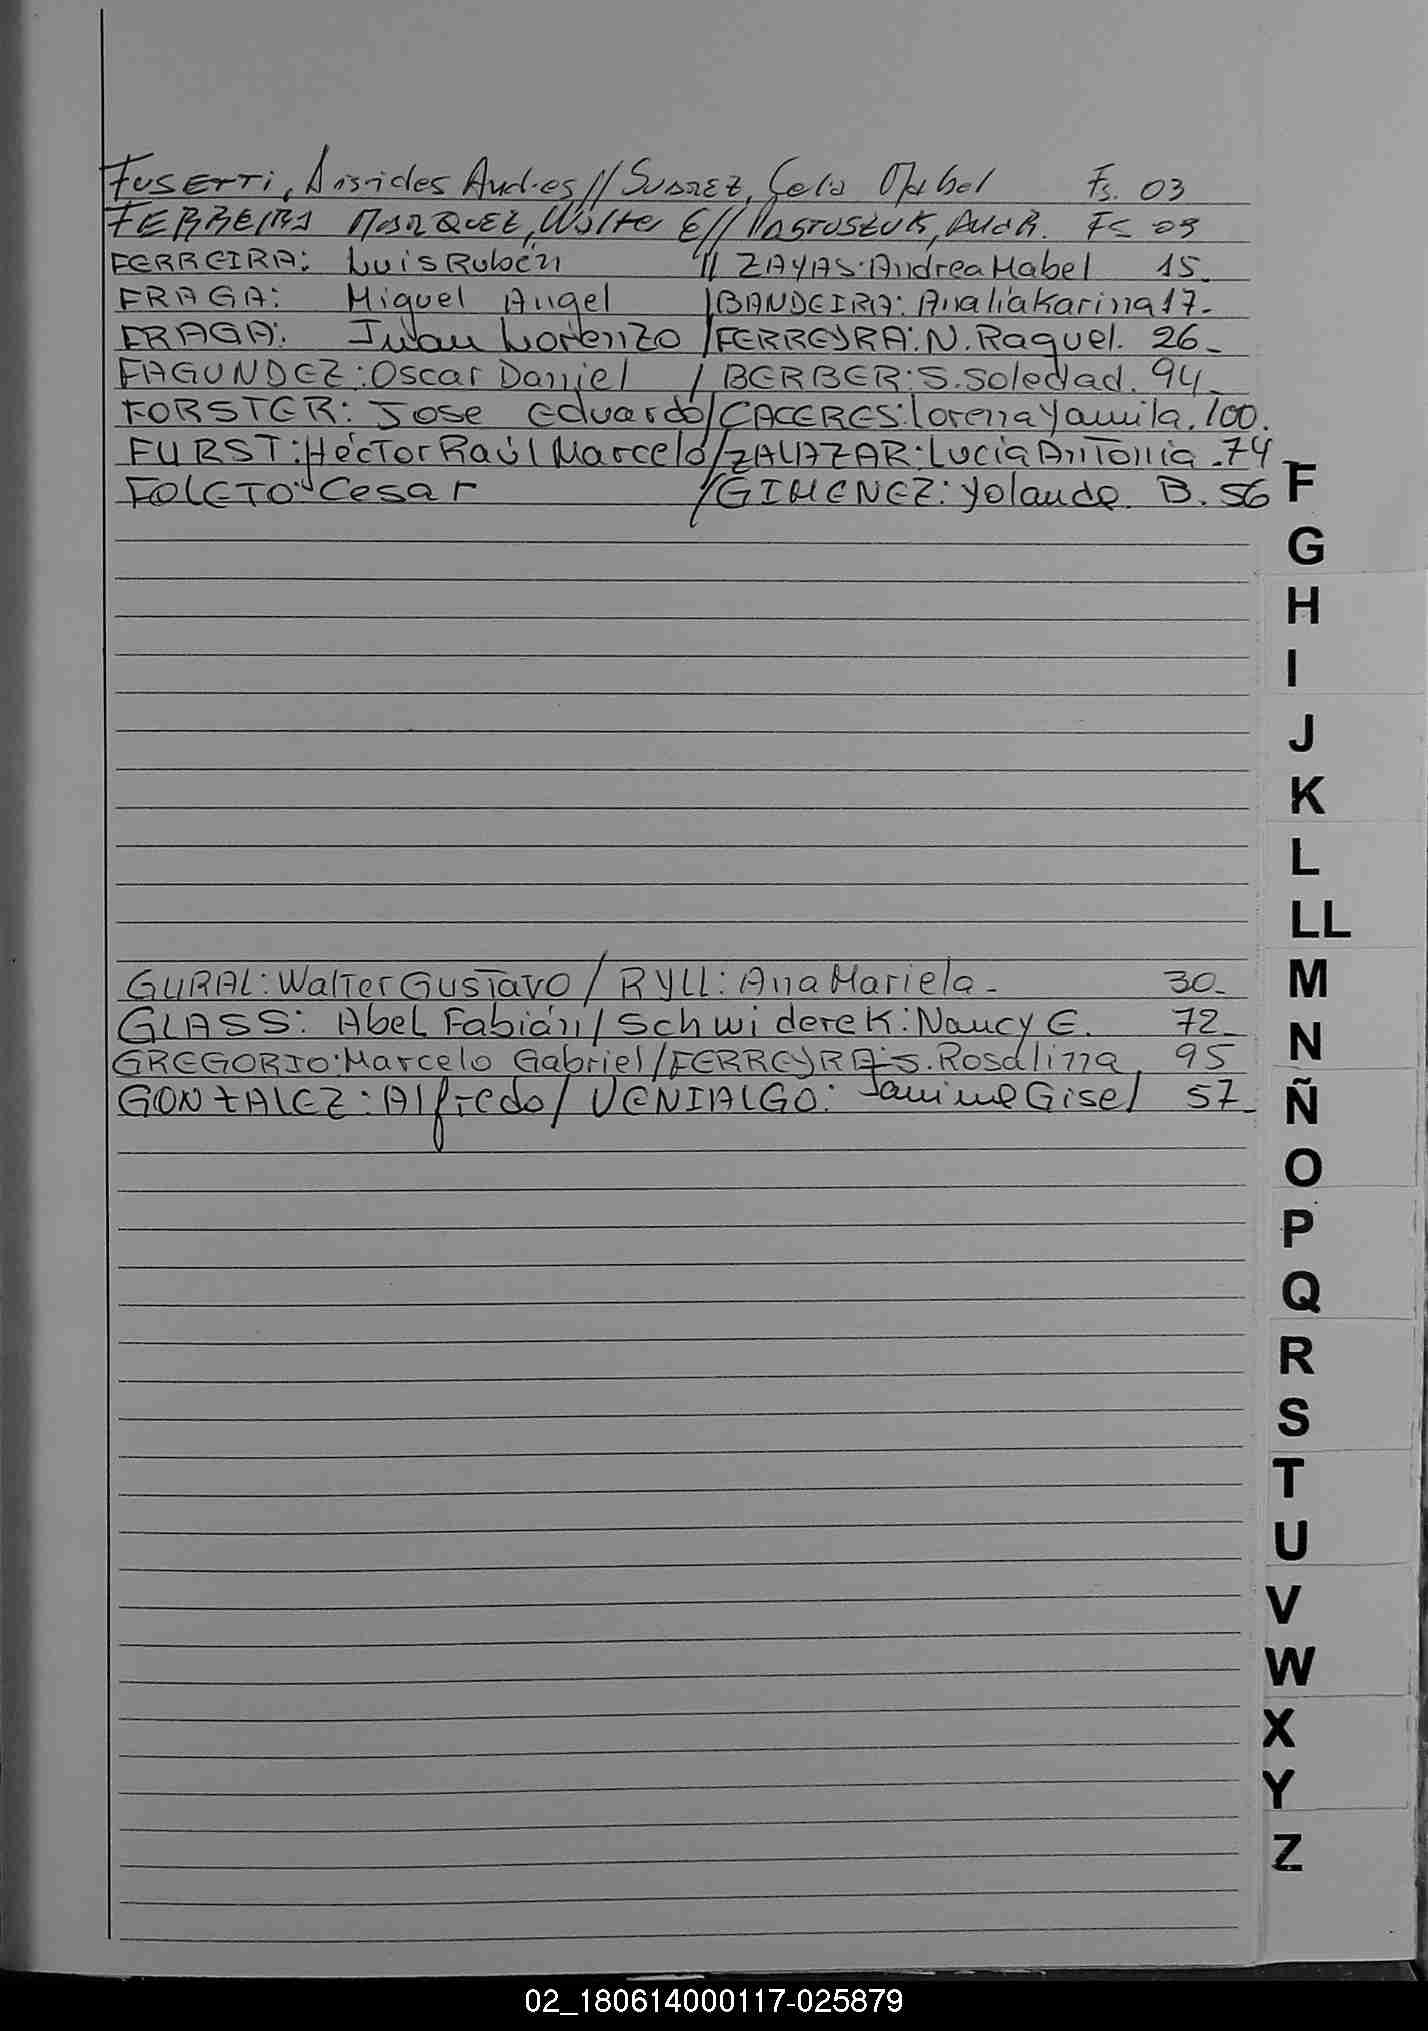 FUSETTI, Arsides Andres // SUAREZ, Celia Mabel Fs. 03
FERREIRA MARQUEZ, Walter E // PASTUSZUK, Aud R. FS 03
FERREIRA: Luis Rubén // ZAYAS: Andrea Mabel 15.
FRAGA: Miguel Angel / BANDEIRA: Analía Karina 17.-
FRAGA: Juan Lorenzo / FERREYRA: N. Raquel. 26_
FAGUNDEZ: Oscar Daniel / BERBER: S. Soledad. 94_
FORSTER: Jose Eduardo / CACERES: Lorena Yamila. 100.
FURST: Héctor Raúl Marcelo / ZALAZAR: Lucía Antonia. 74_
FOLETO: Cesar / GIMENEZ: Yolanda. B. 56
F
G
H
I
J
K
L
LL
GURAL: Walter Gustavo / RYLL: Ana Mariela - 30_
M
GLASS: Abel Fabián / Schwiderek: Nancy E. 72_
N
GREGORIO: Marcelo Gabriel / FERREYRA: S. Rosalina 95
GONZALEZ: Alfredo / VENIALGO: Janine Gisel 57_
Ñ
O
P
Q
R
S
T
U
V
W
X
Y
Z
02_180614000117-025879